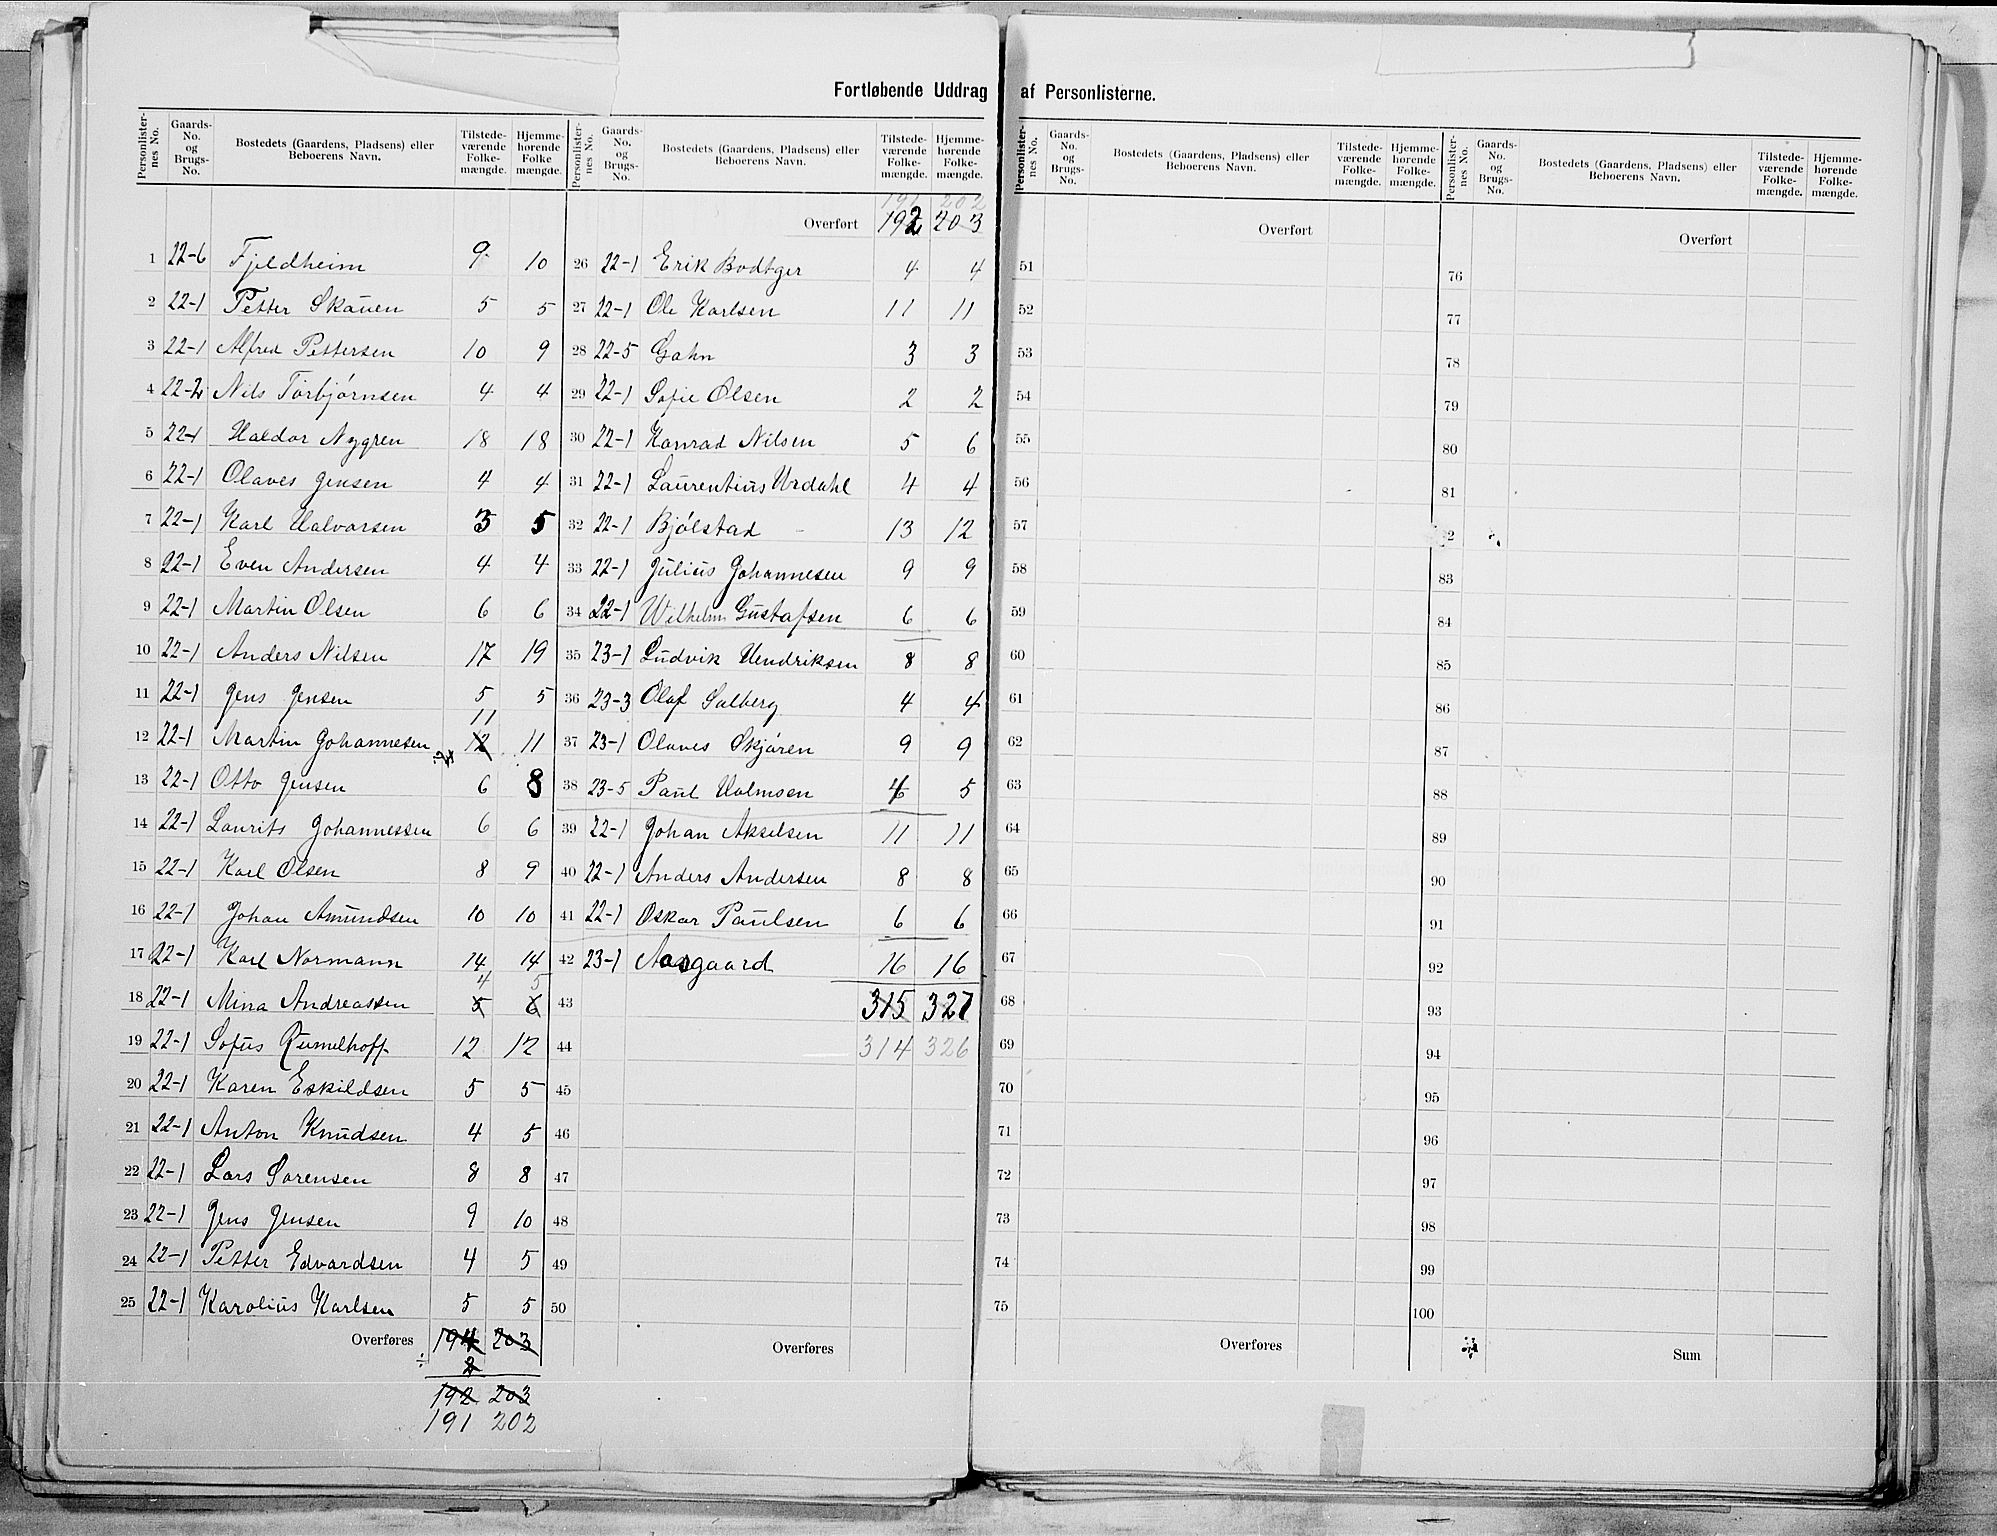 Fortløbende Uddrag af Personlisterne.
Personlister-nes No. Gaards-No. og Brugs-No. Bostedets (Gaardens, Pladsens) eller Beboerens Navn. Tilstede-værende Folke-mængde. Hjemme-hørende Folke mængde.
1 22-6 Fjeldheim 9 10
2 22-1 Petter Skauen 5 5
3 22-1 Alfred Pettersen 10 9
4 22-2 Nils Torbjørnsen 4 4
5 22-1 Haldor Nygren 18 18
6 22-1 Olaves Jensen 4 4
7 22-1 Karl Halvorsen 3 5
8 22-1 Even Andersen 4 4
9 22-1 Martin Olsen 6 6
10 22-1 Anders Nilsen 17 19
11 22-1 Jens Jensen 5 5
11
12 22-1 Martin Johannesen 12 11
13 22-1 Otto Jensen 6 8
14 22-1 Laurits Johannessen 6 6
15 22-1 Karl Olsen 8 9
16 22-1 Johan Amundsen 10 10
17 22-1 Karl Normann 14 14
4 5
18 22-1 Mina Andreassen 5 6
19 22-1 Sofus Rumelhoff 12 12
20 22-1 Karen Eskildsen 5 5
21 22-1 Anton Knudsen 4 5
22 22-1 Lars Sørensen 8 8
23 22-1 Jens Jensen 9 10
24 22-1 Petter Edvardsen 4 5
25 22-1 Karolius Karlsen 5 5
Overføres 194 203
÷ 2
192 203
191 202
Personlister-nes No. Gaards-No. og Brugs-No. Bostedets (Gaardens, Pladsens) eller Beboerens Navn. Tilstede-værende Folke-mængde. Hjemme-hørende Folke-mængde.
191 202
Overført 192 203
26 22-1 Erik Bodtger 4 4
27 22-1 Ole Karlsen 11 11
28 22-5 Gahn 3 3
29 22-1 Sofie Olsen 2 2
30 22-1 Konrad Nilsen 5 6
31 22-1 Laurentius Urdahl 4 4
32 22-1 Bjølstad 13 12
33 22-1 Julius Johannesen 9 9
34 22-1 Wilhelm Gustafsen 6 6
35 23-1 Ludvik Hendriksen 8 8
36 23-3 Olaf Solberg 4 4
37 23-1 Olaves Skjøren 9 9
38 23-5 Paul Holmsen 4 5
39 22-1 Johan Akselsen 11 11
40 22-1 Anders Andersen 8 8
41 22-1 Oskar Paulsen 6 6
42 23-1 Aasgaard 16 16
43 315 327
44 314 326
45
46
47
48
49
50
Overføres
Personlister-nes No. Gaards-No. og Brugs-No. Bostedets (Gaardens, Pladsens) eller Beboerens Navn. Tilstede-værende Folke-mængde. Hjemme-hørende Folke-mængde.
Overført
51
52
53
54
55
56
57
58
59
60
61
62
63
64
65
66
67
68
69
70
71
72
73
74
75
Overføres
Personlister-nes No. Gaards-No. og Brugs-No. Bostedets (Gaardens, Pladsens) eller Beboerens Navn. Tilstede-værende Folke-mængde. Hjemme-hørende Folke-mængde.
Overført
76
77
78
79
80
81
2
83
84
85
86
87
88
89
90
91
92
93
94
95
96
97
98
99
100
Sum